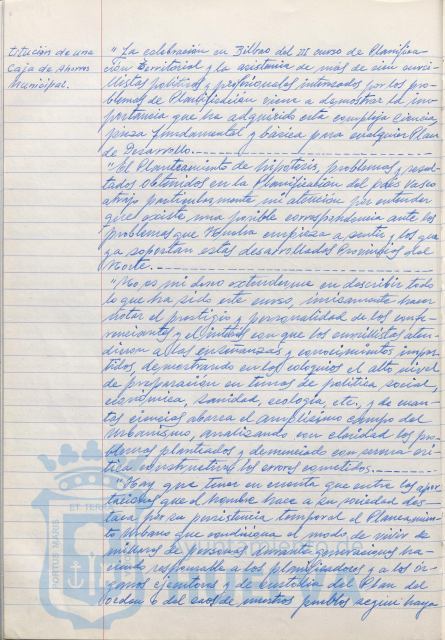 titución de una
Caja de Ahorros
Municipal.
"La celebración en Bilbao del III curso de Planifica-
ción Territorial y la asistencia de más de cien cursi-
llistas políticos y profesionales interesados por los pro-
blemas de Planificación viene a demostrar la im-
portancia que ha adquirido esta compleja ciencia,
pieza fundamental y básica para cualquier Plan
de Desarrollo.
"El Planteamiento de hipótesis, problemas y resul-
tados obtenidos en la Planificación del país vasco
atrajo particularmente mi atención por entender
que existe una posible correspondencia ante los
problemas que Huelva empieza a sentir y los que
ya soportan estas desarrolladas Provincias del
Norte.
"No es mi deseo extenderme en describir todo
lo que ha sido este curso, únicamente hacer
notar el prestigio y personalidad de los confe-
renciantes y el interés con que los cursillistas aten-
dieron a las enseñanzas y conocimientos impar-
tidos, demostrando en los coloquios el alto nivel
de preparación en temas de política social,
económica, sanidad, ecología, etc., y de cuan-
tas ciencias abarca el amplísimo campo del
urbanismo, analizando con claridad los pro-
blemas planteados y denunciado con serena crí-
tica constructiva los errores cometidos.
"Hay que tener en cuenta que entre las apor-
taciones que el hombre hace a su sociedad des-
taca por su persistencia temporal el Planeamien-
to Urbano que condiciona el modo de vivir de
millares de personas durante generaciones ha-
ciendo responsable a los planificadores y a los ór-
ganos ejecutores y de custodia del Plan del
orden o del caos de nuestros pueblos según haya
PORTUS MARIS
ET TERR